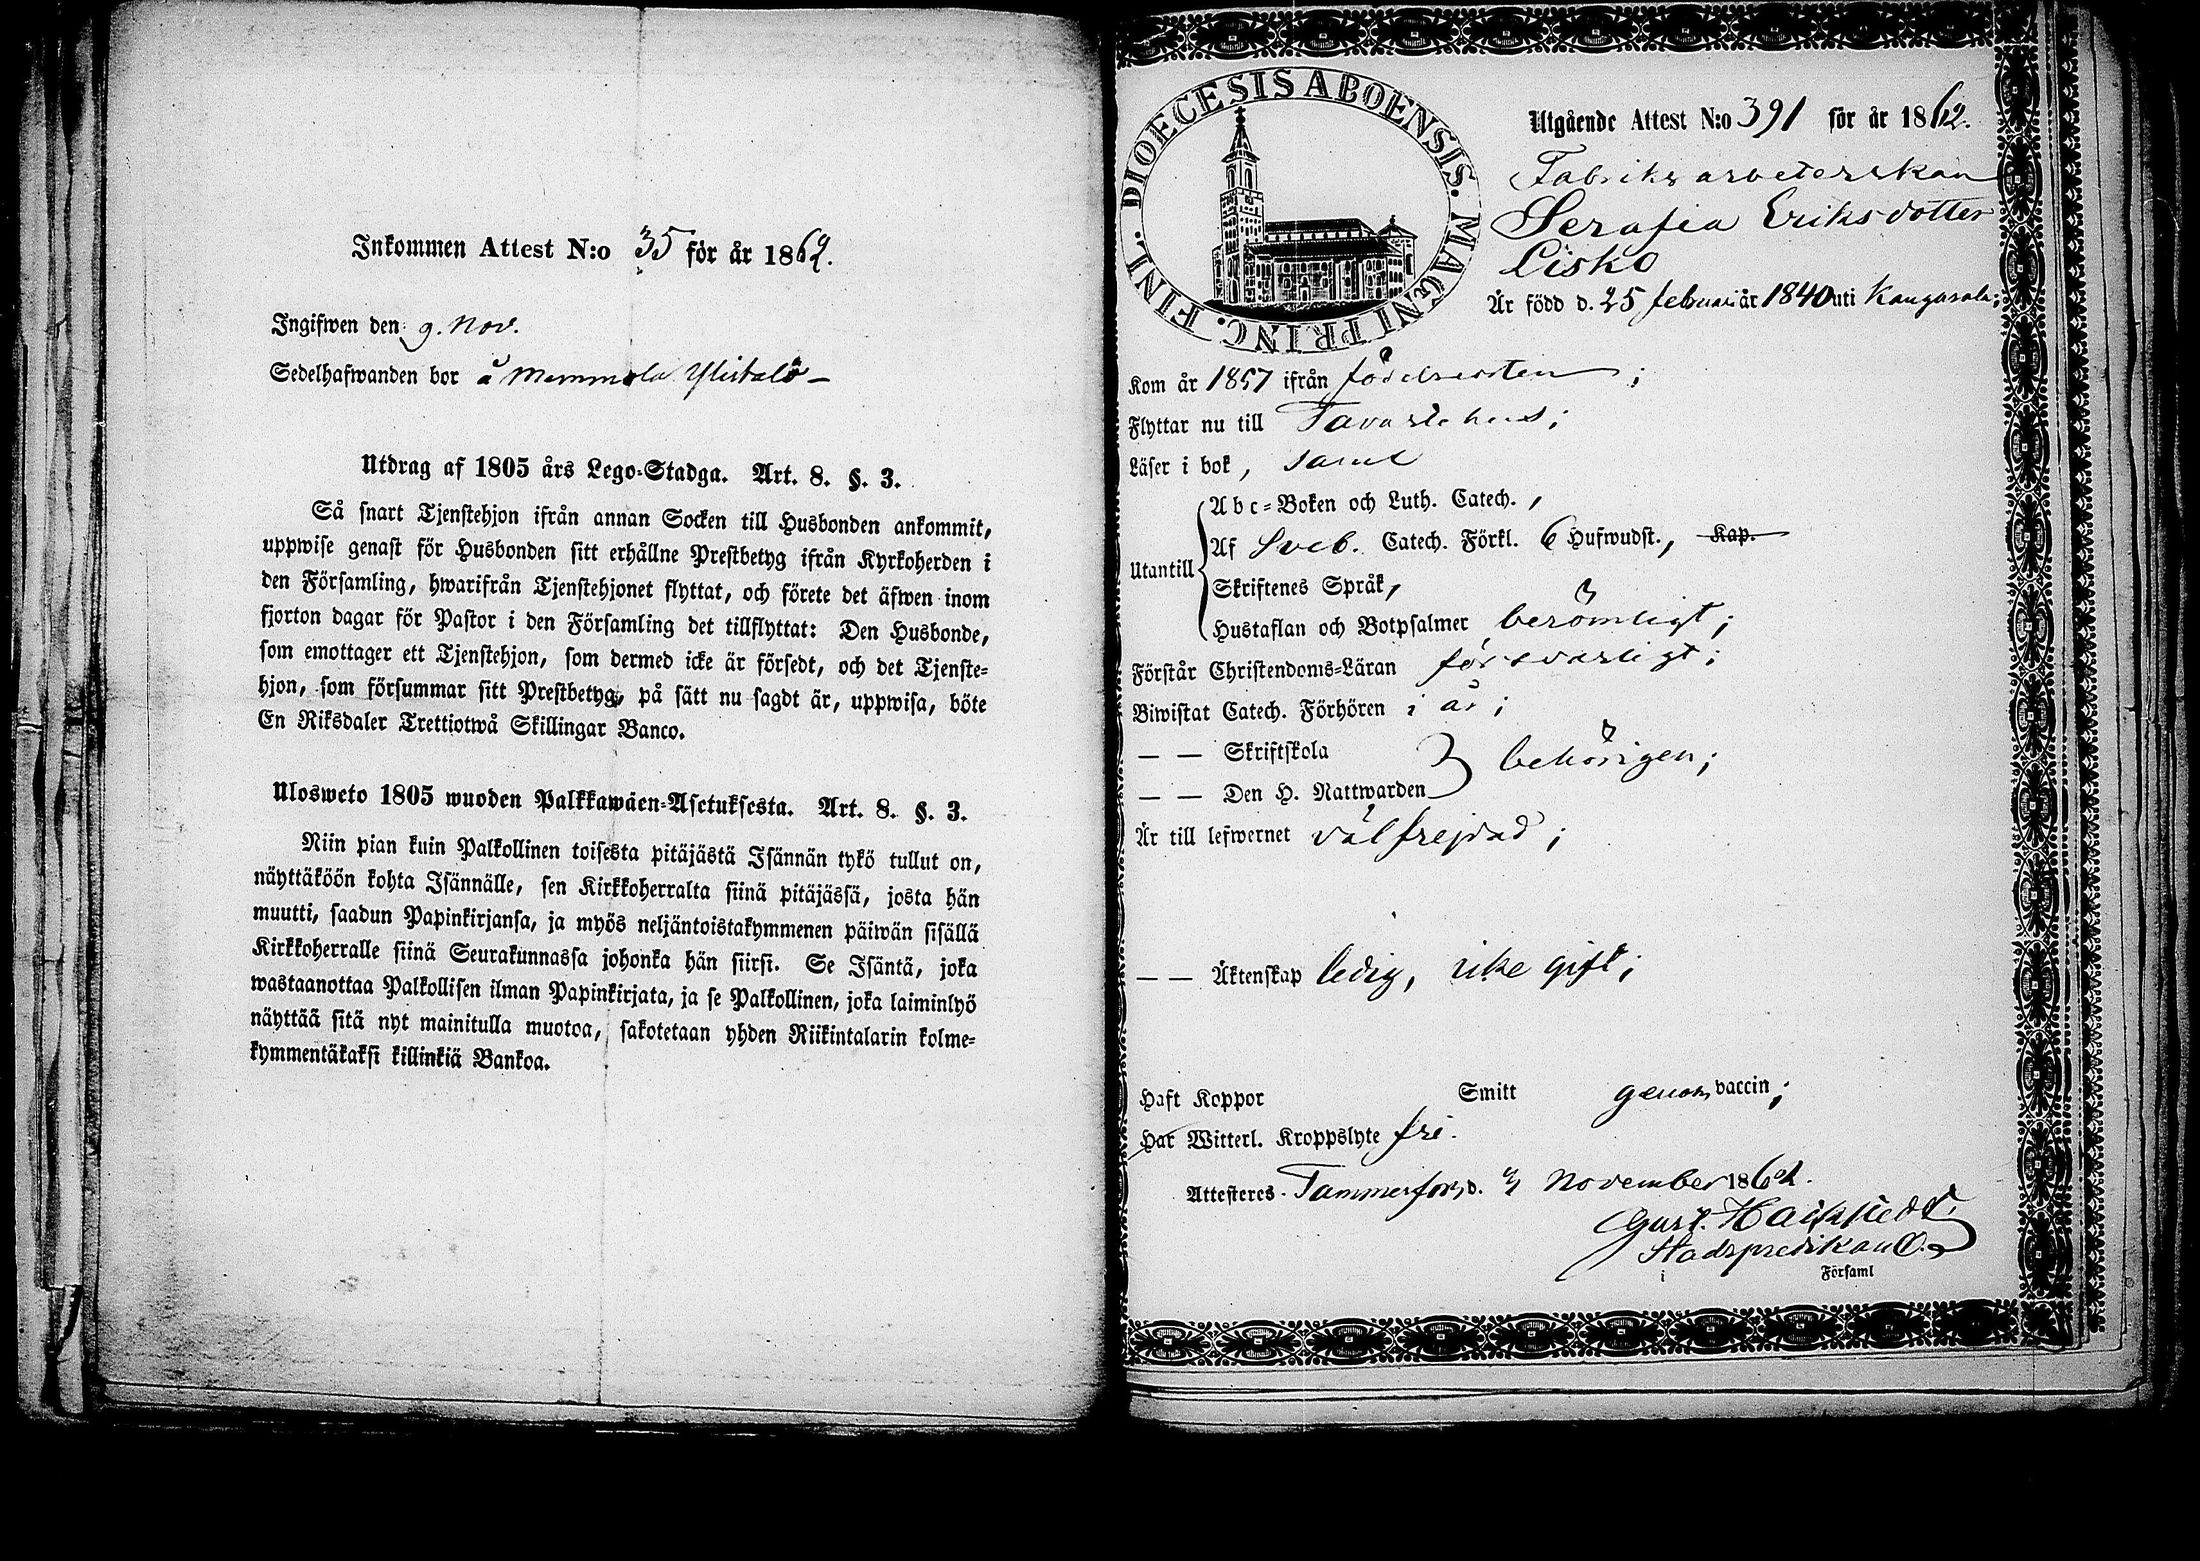 Inkommen Attest N:o 35 för år 1862.
Ingifwen den 9. Nov.
Sedelhafwanden bor å Memmola Ylistalo
Utdrag af 1805 års Lego-Stadga. Art. 8. §. 3.
Så snart Tjenstehjon ifrån annan Socken till Husbonden ankommit,
uppwise genast för Husbonden sitt erhållne Prestbetyg ifrån Kyrkoherden i
den Församling, hwarifrån Tjenstehjonet flyttat, och förete det äfwen inom
fjorton dagar för Pastor i den Församling det tillflyttat: Den Husbonde,
som emottager ett Tjenstehjon, som dermed icke är försedt, och det Tjenste-
hjon, som försummar sitt Prestbetyg, på sätt nu sagdt är, uppwisa, böte
En Riksdaler Trettiotwå Skillingar Banco.
Ulosweto 1805 wuoden Palkkawäen-Asetuksesta. Art. 8. §. 3.
Niin pian kuin Palkollinen toisesta pitäjästä Isännän tykö tullut on,
näyttäköön kohta Isännälle, sen Kirkkoherralta siinä pitäjässä, josta hän
muutti, saadun Papinkirjansa, ja myös neljäntoistakymmenen päiwän sisällä
Kirkkoherralle siinä Seurakunnassa johonka hän siirsi. Se Isäntä, joka
wastaanottaa Palkollisen ilman Papinkirjata, ja se Palkollinen, joka laiminlyö
näyttää sitä nyt mainitulla muotoa, sakotetaan yhden Riikintalarin kolme-
kymmentäkaksi killinkiä Bankoa.
DIOECESIS ABOENSIS. MAGNI PRINC. FINL.
Utgående Attest N:o 391 för år 1862.
Fabriks arbeterskan
Serafia Eriksdotter
Cisko
Är född d. 25 februari år 1840 uti Kangasala;
Kom år 1857 ifrån födelseorten;
Flyttar nu till Tavastehus;
Läser i bok, samt
Abc-Boken och Luth. Catech.,
Af Sveb. Catech. Förkl. 6 Hufwudst., Kap.
Utantill
Skriftenes Språk,
Hustaflan och Botpsalmer berömligt;
Förstår Christendoms-Läran försvarligt;
Biwistat Catech. Förhören i år;
— — Skriftskola
behörigen;
— — Den H. Nattwarden
Är till lefwernet välfrejdad;
— — Äktenskap ledig, icke gift;
Haft Koppor Smitt genom vaccin;
Har Witterl. Kroppslyte fri.
Attesteres Tammerfors, d. 3 November 1862.
Gust.
Stadspredikant.
i Församl